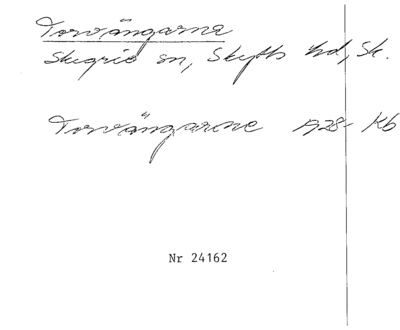 Torvängarna
Skegrie sn, Skytts hd, Sk.
Torvängarne 1928 Kb
Nr 24162